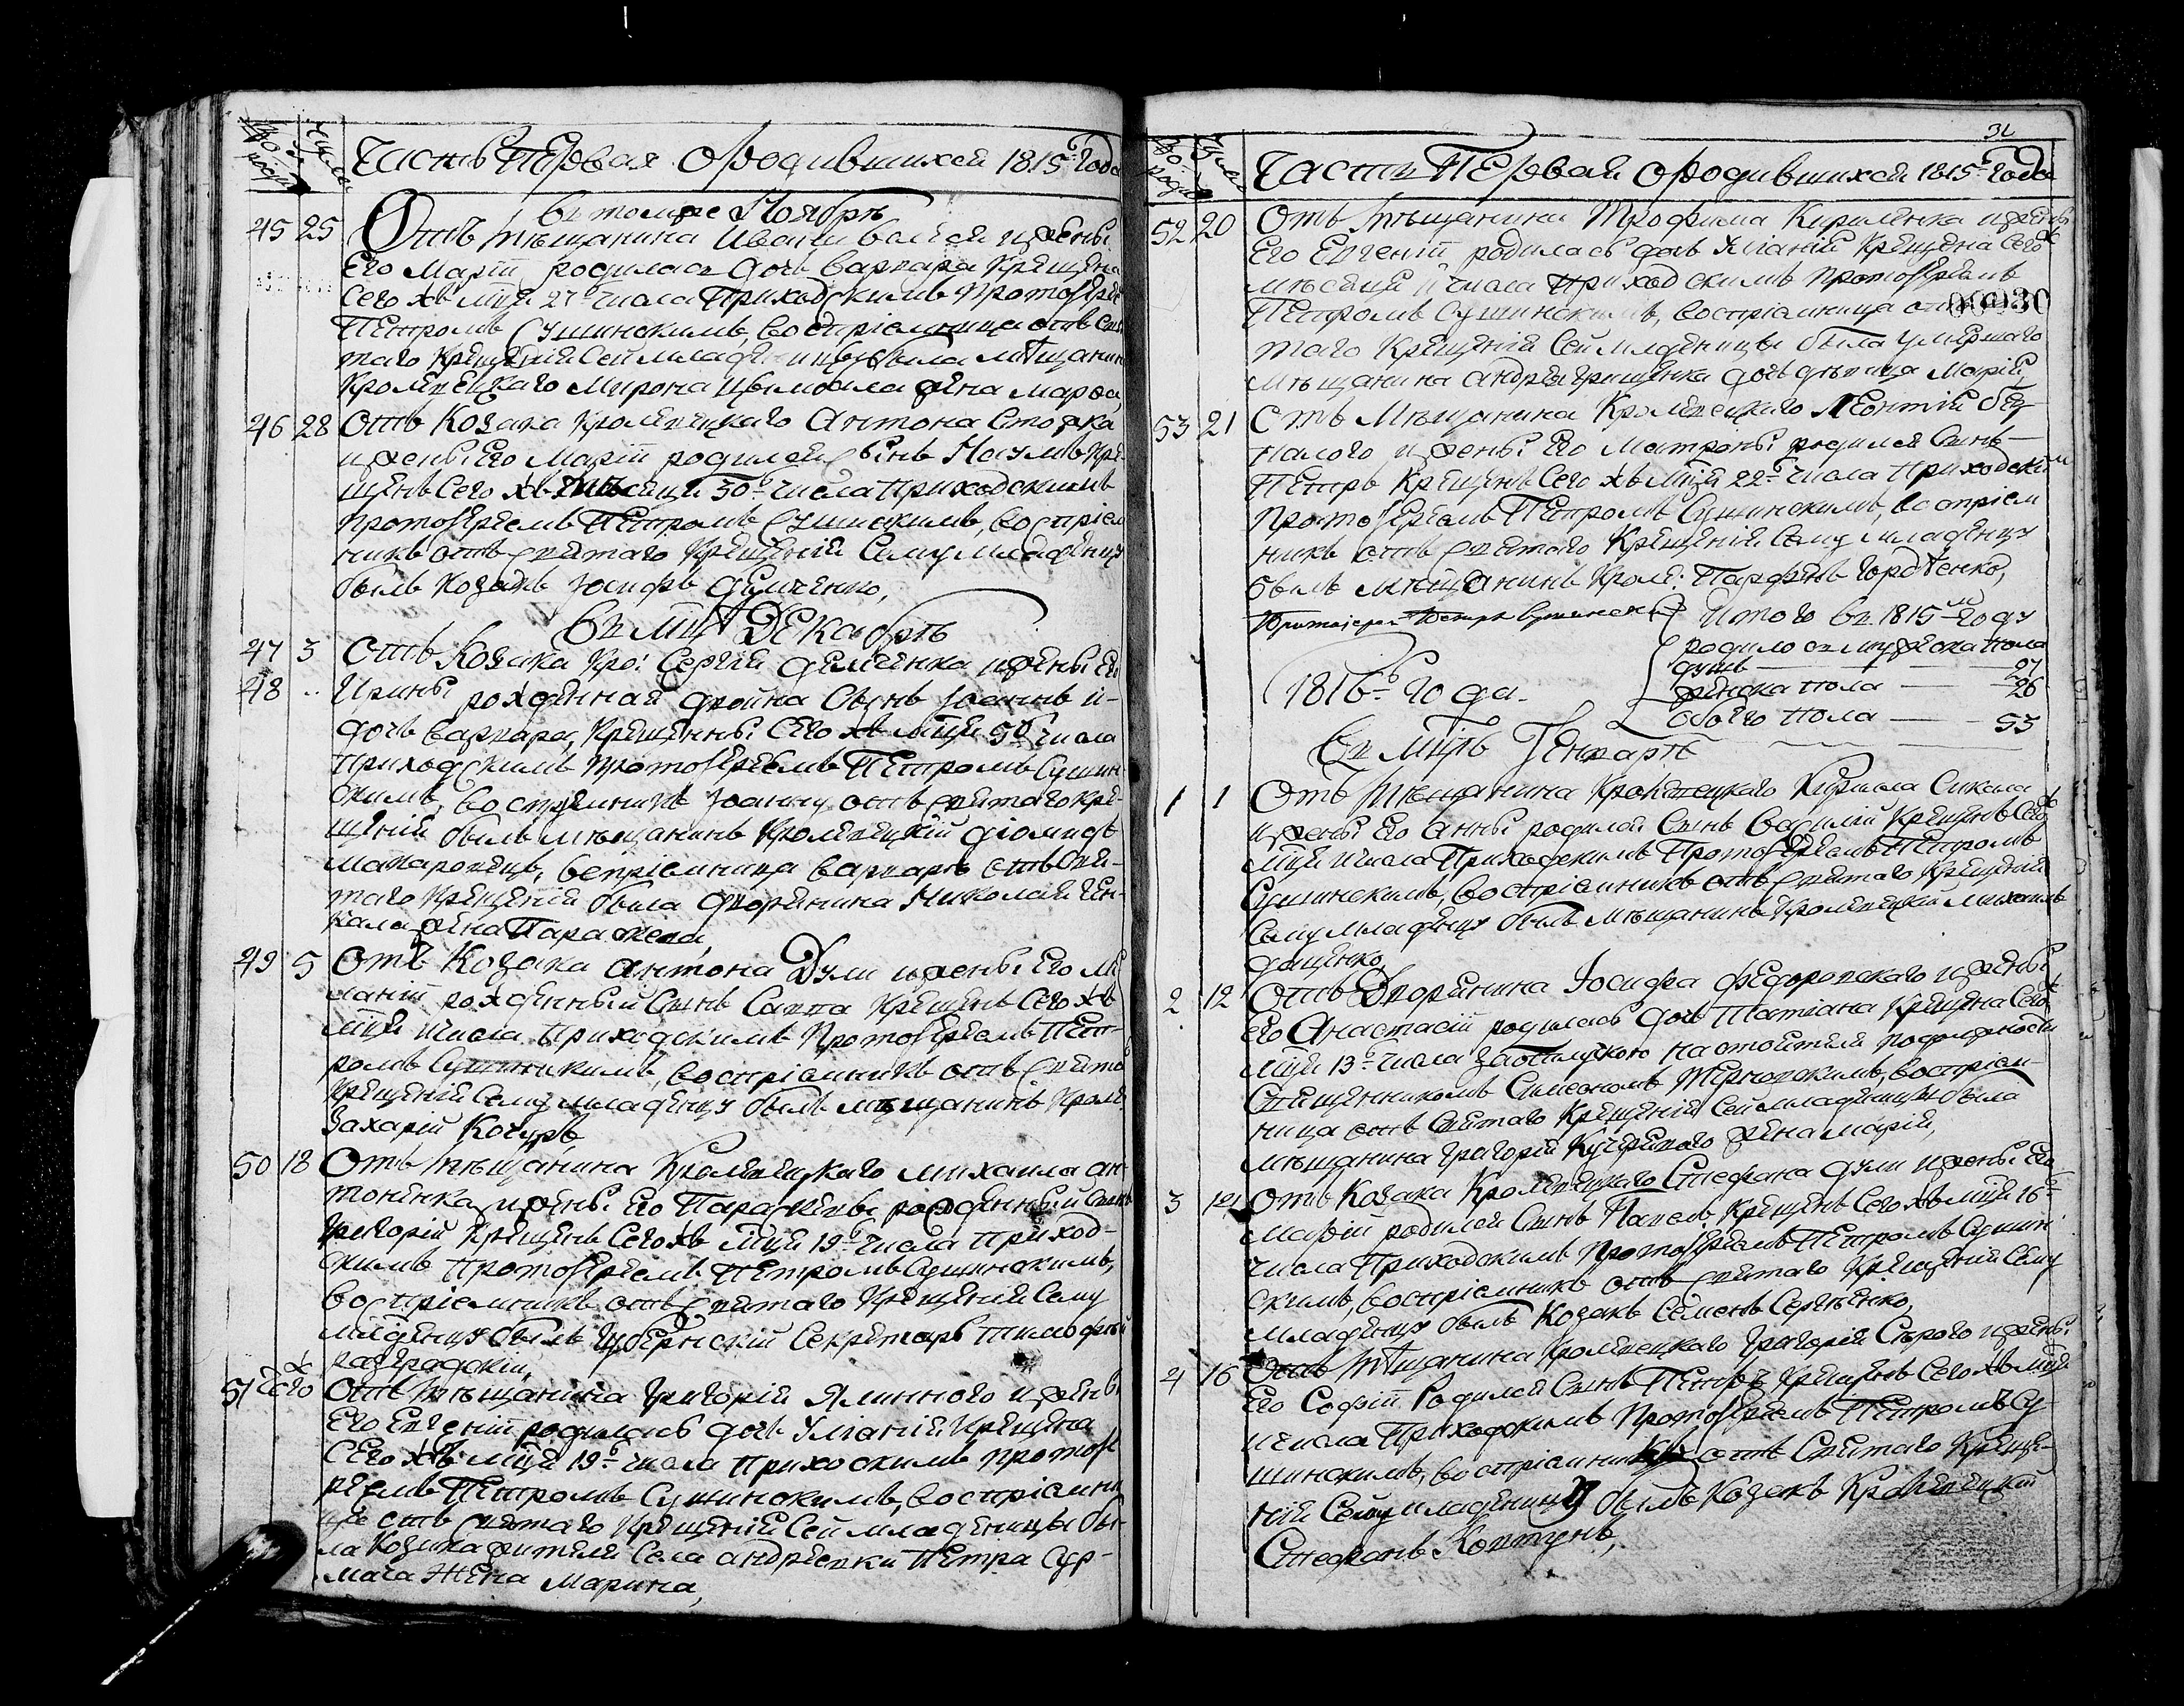 Число родивш
Числа
Часть Первая о родившихся 1815г. Года
Въ томже Ноябрѣ
45 25 Отъ мѣщанина Ивана и жены
Его Маріи родилась дочь Варвара Крещена
Сего жъ мця 27г числа Приходскимъ протоіерее
Петромъ Сушинскимъ, воспріемница отъ свя
таго Крещенія сей младеницы была мѣщанин
Кролевецкаго Мирона жена Марфа,
46 28 Отъ Козака Кролевецкаго Антона Сто
и жены Его Маріи родился сынъ Наумъ кре
щенъ сего жъ мѣсяця 30г числа приходскимъ
протоіереемъ Петромъ Сушискимъ, воспріем
никъ отъ святаго крещенія сему младенцу
былъ козакъ Іосифъ Демченко,
Въ мцѣ Декабрѣ
47 3 Отъ Козака Кро: Сергѣя Демченка и жены Ег
48 .. Ирины рожденная двойна Сынъ Іоаннъ и
дочь Варвара, крещенны Сего жъ мця 5г числа
Приходскимъ протоіереемъ Петромъ Сушин
скимъ, воспріемникъ Іоанну отъ святаго кре
щенія былъ мѣщанинъ Кролевецкій Діомидъ
Макаровецъ, воспріемница Варварѣ отъ свя
таго крещенія была дворянина Николая Ген
жена Параскева,
49 5 Отъ Козака Антона Дули и жены Его Ме
ланіи рожденный Сынъ Савва Крещенъ Сего жъ
мця числа приходскимъ протоіереемъ Пет
ромъ Сушинскимъ, воспріемникъ отъ свято
крещенія сему младенцу былъ мѣщанинъ Кроле
Захарій Кочуръ,
50 18 Отъ мѣщанина Кролевецкаго Михаила Ан
тоненка и жены Его Параскевы рожденный Сынъ
Григорій Крещенъ Сего жъ мця 19г числа приход
скимъ протоіереемъ Петромъ Сушинскимъ,
воспріемникъ отъ святаго крещенія сему
младенцу былъ губернскій Секретарь Тимофей
разградскій,
51 того Отъ мѣщанина Григорія Ялинного и жены
Его Евгеніи родилась дочь Уліанія Крещена
Сего жъ мця 19г числа прихоскимъ протоі
реемъ Петромъ Сушинскимъ, воспріемни
це отъ святаго крещенія сей младеницы бы
ла Козака жителя Села Андреевки Петра Сур
мача жена Марина,
31
Часть Первая о родившихся 1815г Года
52 20 Отъ мѣщанина Трофима Кириленка и жены
Его Евгеніи родилась дочь Уліанія Крещена Сего жъ
мѣсяця и числа приходскимъ протоіереемъ
Петромъ Сушинскимъ, воспріемница отъ
00030
таго крещенія сей младеницы была умершаго
мѣщанина Андрея Грищенка дочь дѣвица Марія,
53 21 Отъ Мѣщанина Кролевецкаго Леонтія Без
палого и жены Его Матроны родился Сынъ
Петръ Крещенъ Сего жъ мця 22г числа приходским
протоіереемъ Петромъ Сушинскимъ, воспріем
никъ отъ святаго крещенія сему младенцу
былъ мѣщанинъ Кроле: Парфенъ Гордѣенко,
Протоіерей Петръ Сушинскій
Итого въ 1815м году
родилось мужеска пола
душъ 27
женска пола 26
обоего пола 53
1816г Года
Въ мцѣ Генварѣ
1 1 Отъ мѣщанина Кролевецкаго Кирила Сикала
и жены Его Анны родился Сынъ Василій Крещенъ Сего жъ
мця числа Приходскимъ протоіереемъ Петромъ
Сушинскимъ, воспріемникъ отъ святаго крещенія
сему младенцу былъ мѣщанинъ Кролевецкій Михаилъ
Дащенко,
2 12 Отъ Дворянина Іосифа Федоровскаго и жены
Его Анастасіи родилась дочь Татіана Крещена Сего жъ
мця 13г числа за отлучкою настоятеля по должности
Священникомъ Симеономъ воспріем
ница отъ святаго крещенія сей младеницы была
мѣщанина Григорія жена Марія,
3 14 Отъ Козака Кролевецкаго Стефана Дули и жены Его
Маріи родился Сынъ Павелъ Крещенъ Сего жъ мця 16г
числа Приходскимъ протоіереемъ Петромъ Сушин
скимъ, воспріемникъ отъ святаго крещенія сему
младенцу былъ Козакъ Семенъ Сергѣенко,
4 16 Отъ мѣщанина Кролевецкаго Григорія Сѣрого и жены
Его Софіи Родился Сынъ Петръ Крещенъ Сего жъ мця
и числа Приходскимъ протоіереемъ Петромъ Су
шинскимъ, воспріемникъ отъ святаго креще
нія сему младенцу былъ Козакъ Кролевецкій
Стефанъ Ковтунъ,